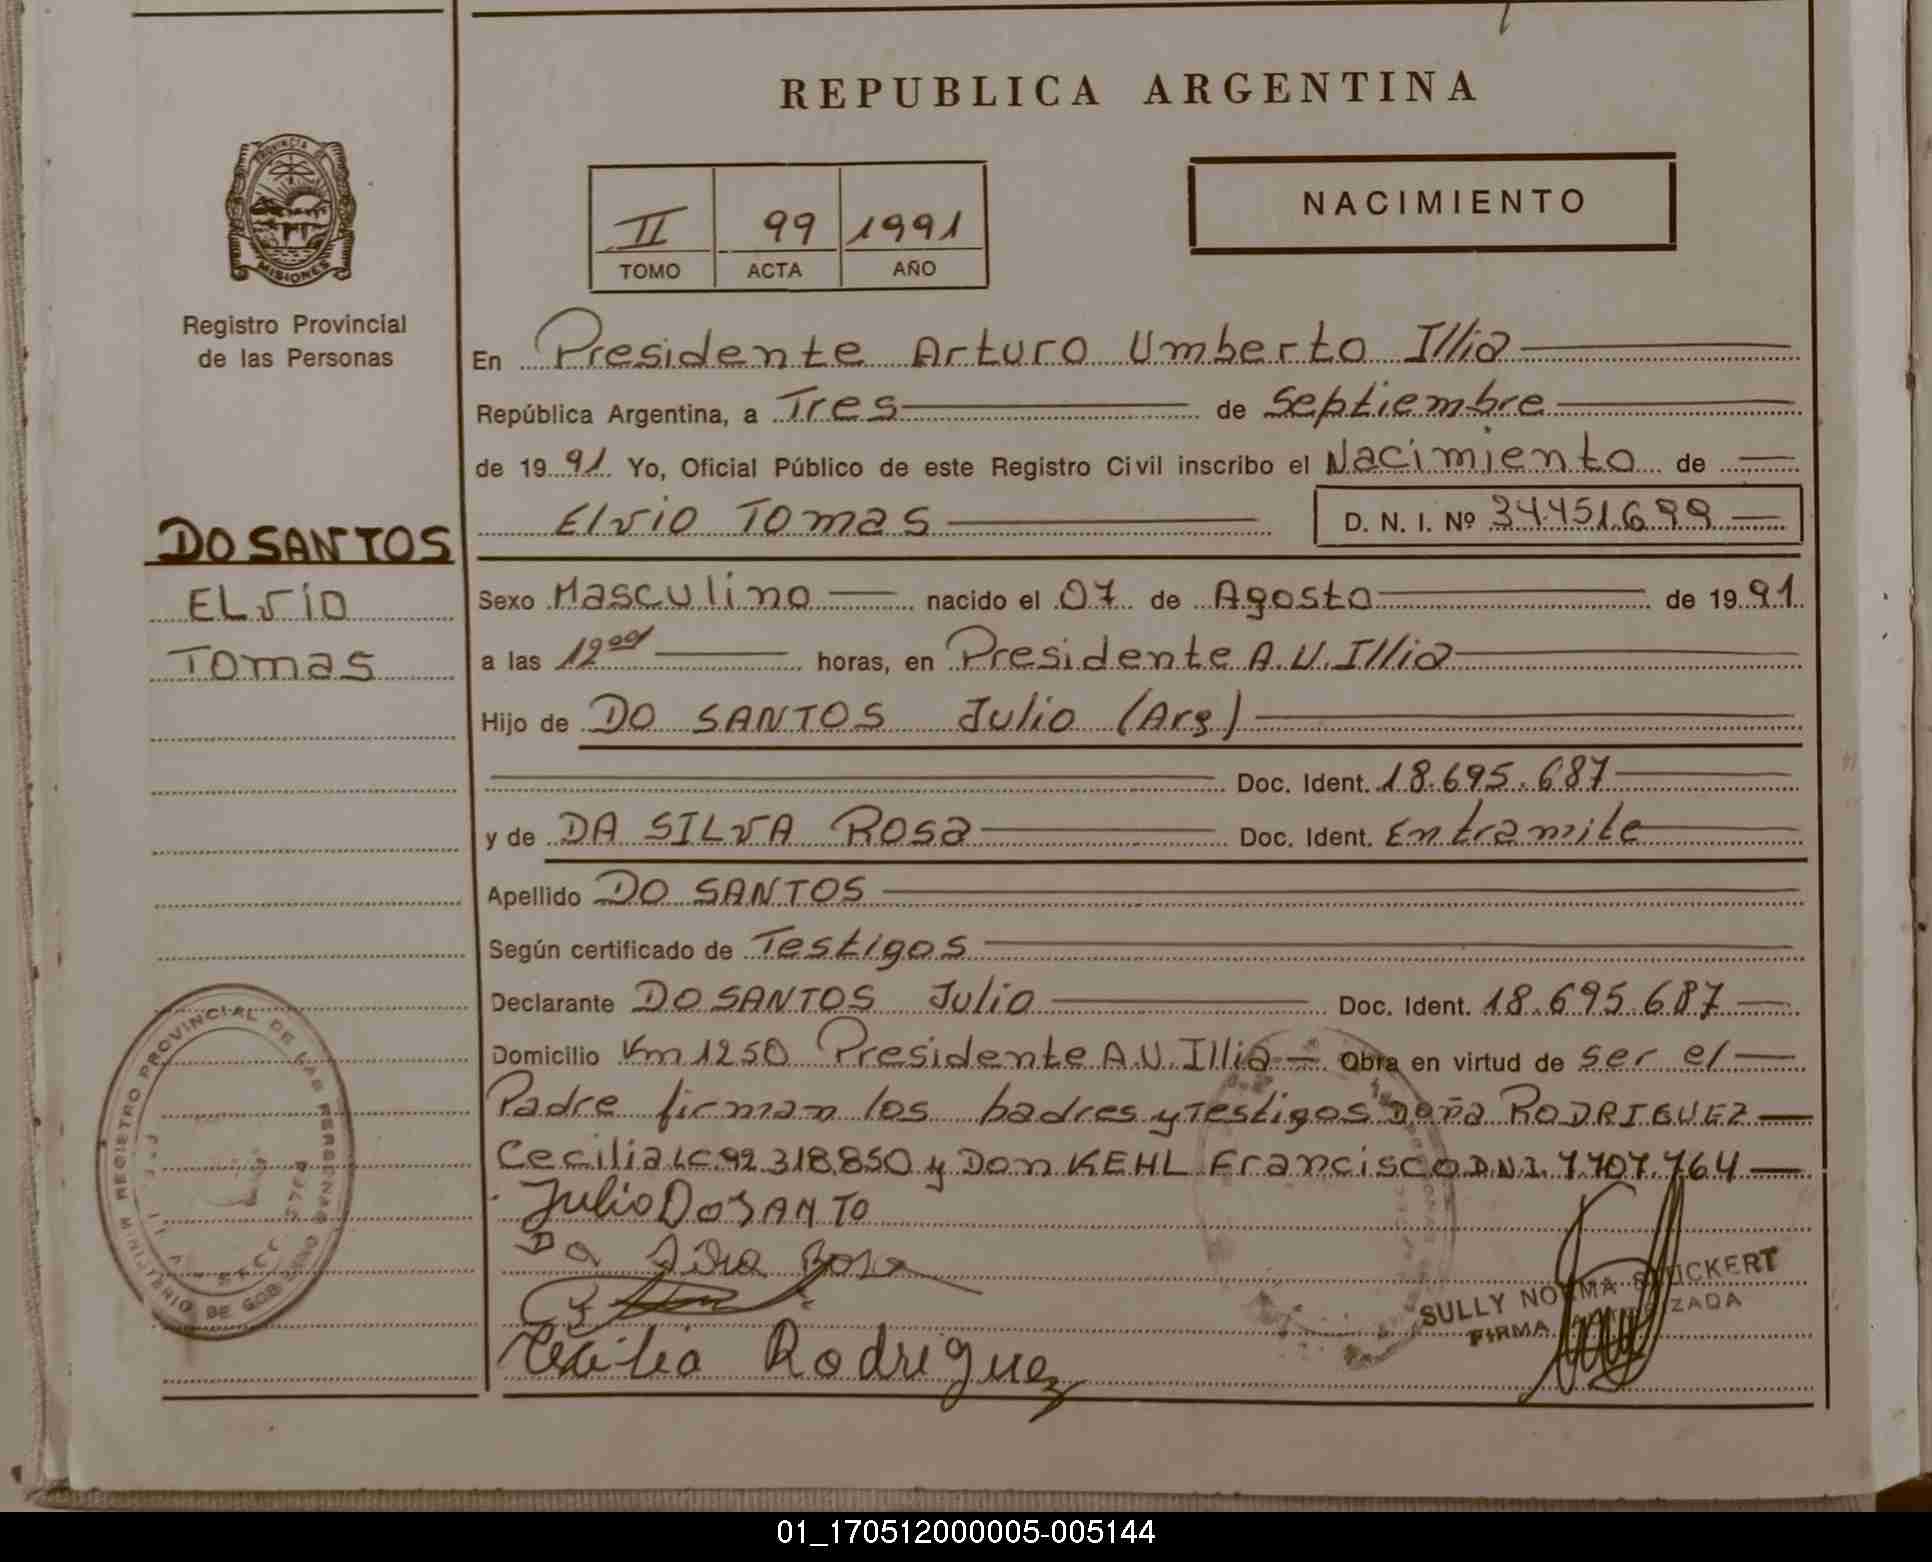 REPUBLICA ARGENTINA
PROVINCIA DE
MISIONES
Registro Provincial
de las Personas
II 99 1991
TOMO ACTA AÑO
NACIMIENTO
En Presidente Arturo Umberto Illia
República Argentina, a Tres de Septiembre
de 1991 Yo, Oficial Público de este Registro Civil inscribo el Nacimiento de
Elvio Tomas D. N. I. Nº 34.451.699
DO SANTOS
ELVIO
Tomas
Sexo Masculino nacido el 07 de Agosto de 1991
a las horas, en Presidente A.U. Illia
Hijo de DO SANTOS Julio (Arg)
Doc. Ident. 18.695.687
y de DA SILVA Rosa Doc. Ident. Entramite
Apellido DO SANTOS
Según certificado de Testigos
Declarante DO SANTOS Julio Doc. Ident. 18.695.687
Domicilio Km 1250 Presidente A.U. Illia Obra en virtud de ser el
Padre firman los padres y Testigos Doña RODRIGUEZ
Cecilia LC 92.318.850 y Don KEHL Francisco D.N.I. 7.707.764
Julio DO SANTO
Da Silva Rosa
Cecilia Rodriguez
SULLY NORMA
FIRMA AUTORIZADA
REGISTRO PROVINCIAL DE LAS PERSONAS
MINISTERIO DE GOBIERNO
01_170512000005-005144